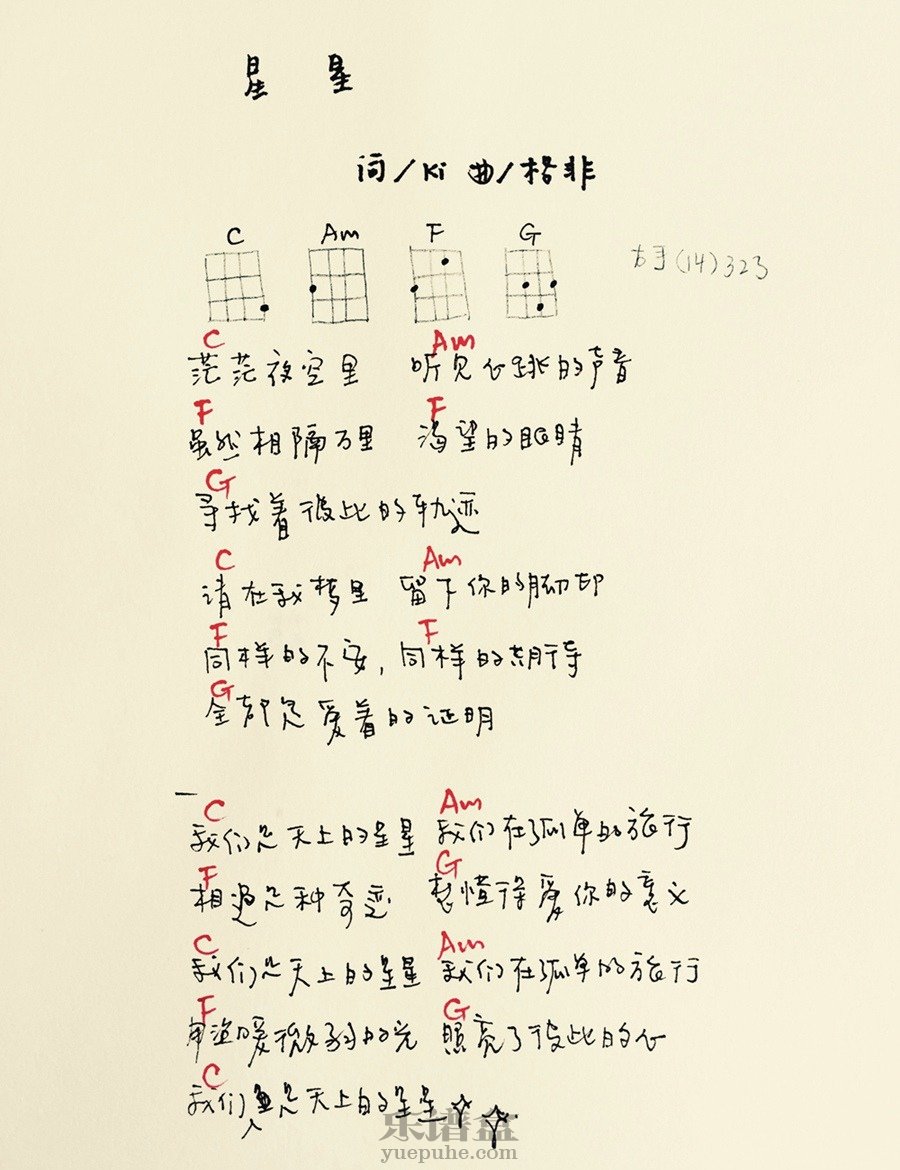 星 星
词/Ki 曲/格非
C Am F G
右手(14)323
C Am
茫茫夜空里 听见心跳的声音
F F
虽然相隔万里 渴望的眼睛
G
寻找着彼此的轨迹
C Am
请在我梦里 留下你的脚印
F F
同样的不安,同样的期待
G
全都是爱着的证明
C Am
我们是天上的星星 我们在孤单的旅行
F G
相遇是种奇迹 想懂得爱你的意义
C Am
我们是天上的星星 我们在孤单的旅行
F G
用温暖微弱的光 照亮了彼此的心
C
我们是天上的星星
乐谱盒
yuepuhe.com